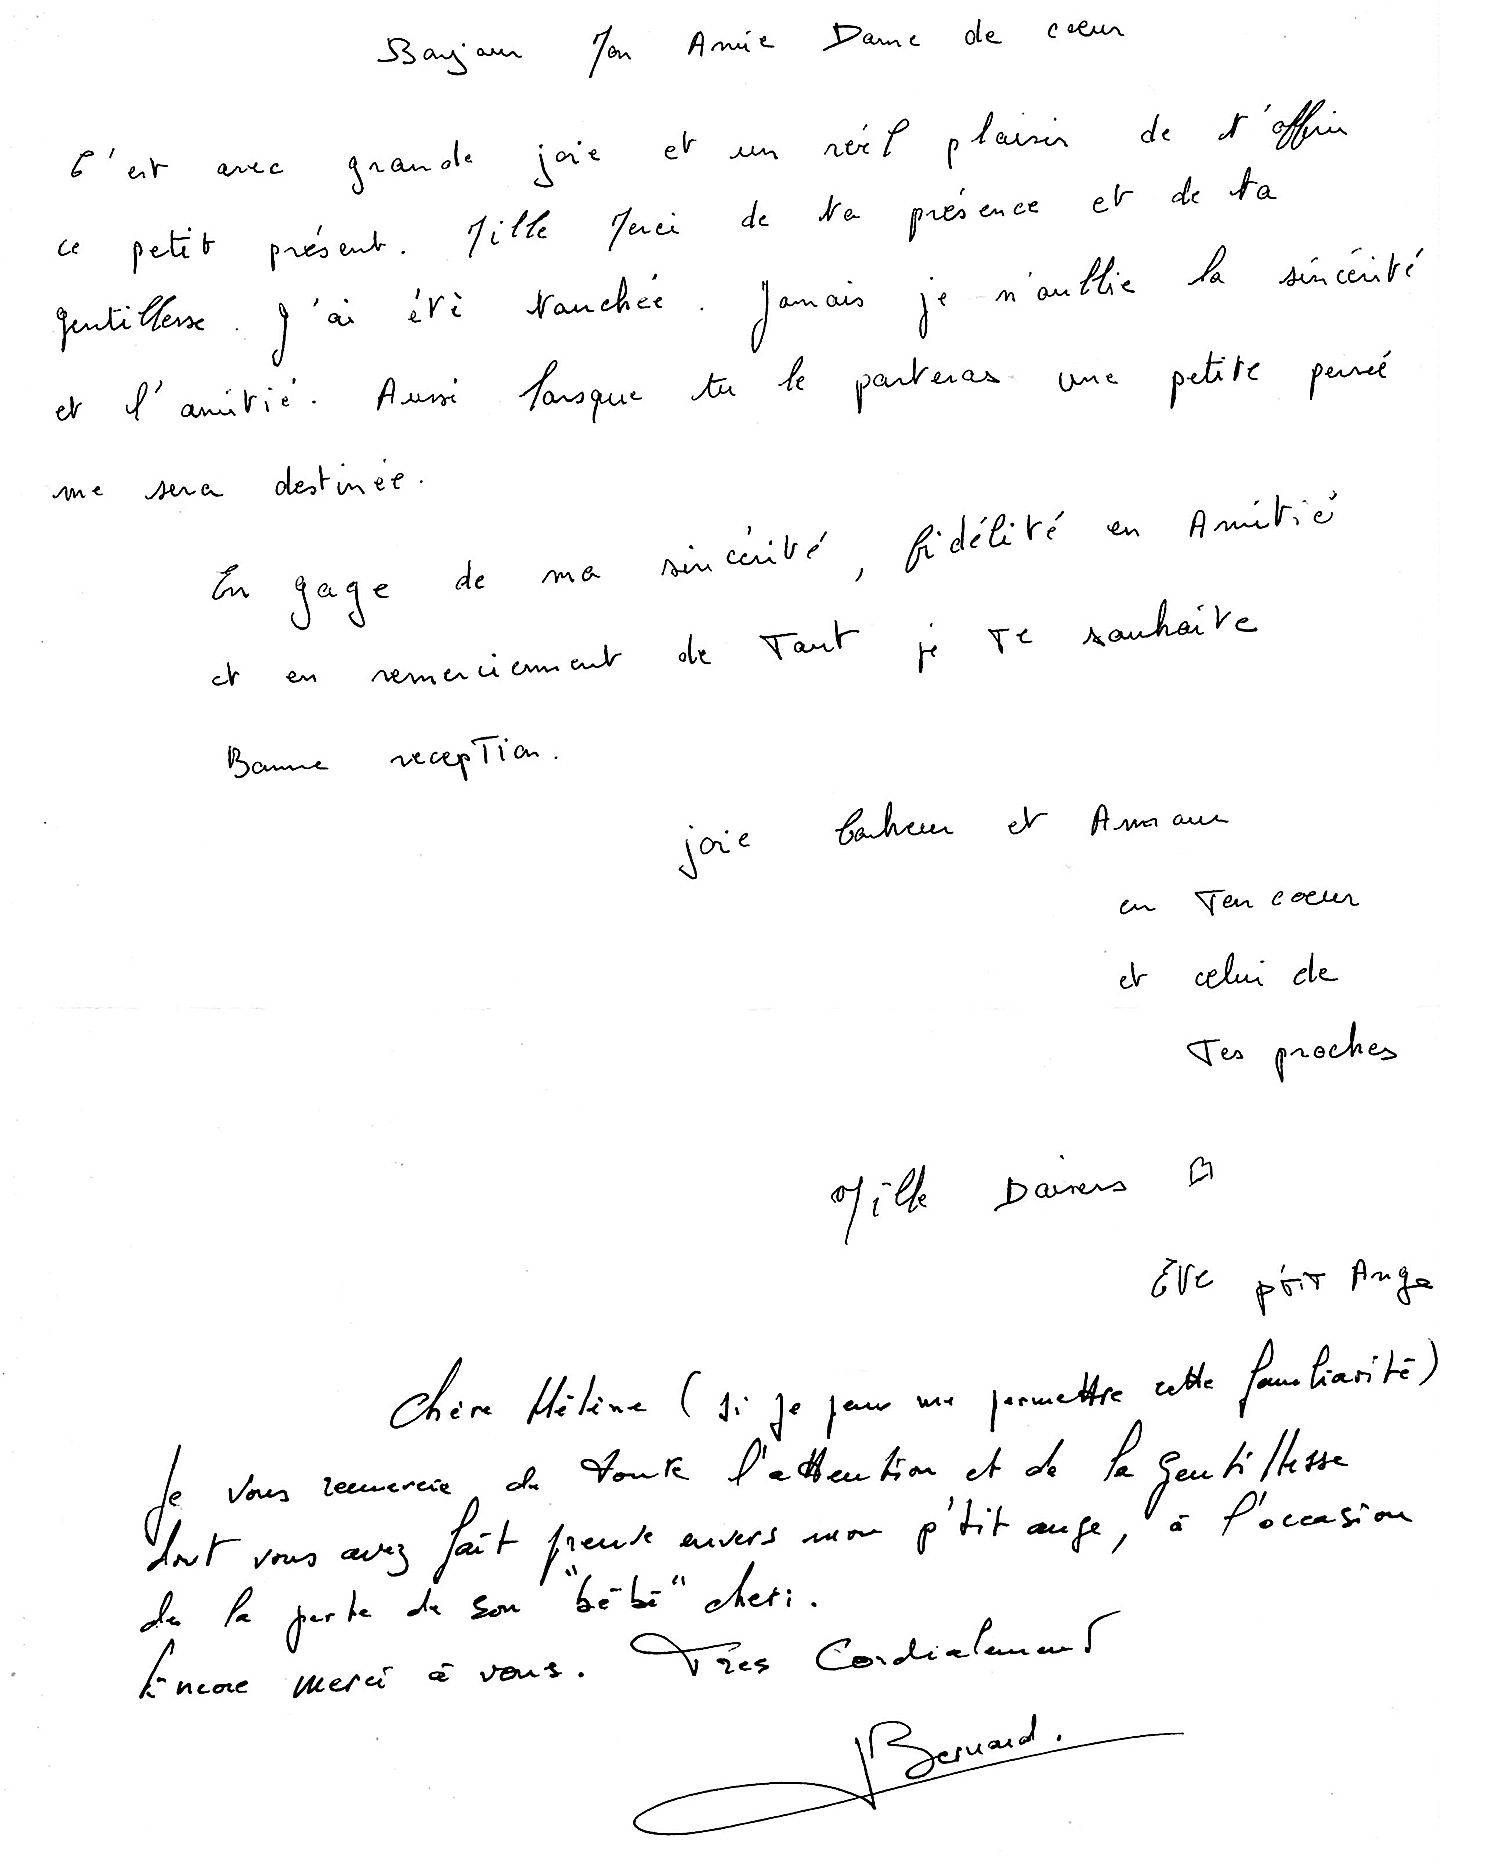 Bonjour Mon Amie Dame de coeur
C'est avec grande joie et un réél plaisir de t'offrir
ce petit présent. Mille Merci de ta présence et de ta
gentillesse. J'ai été touchée. Jamais je n'oublie la sincérité
et l'amitié. Aussi lorsque tu le porteras une petite pensée
me sera destinée.
En gage de ma sincérité, fidélité en Amitié
et en remerciement de Tout je Te souhaite
Bonne reception.
joie bonheur et Amour
en Ton coeur
et celui de
Tes proches
Mille Doivers
Eve p'tit Ange
Chère Hélène (si je peux me permettre cette familiarité)
Je vous remercie de toute l'attention et de la gentillesse
dont vous avez fait preuve envers mon p'tit ange, à l'occasion
de la perte de son "bébé" cheri.
Encore merci à vous. Très Cordialement
Bernard.